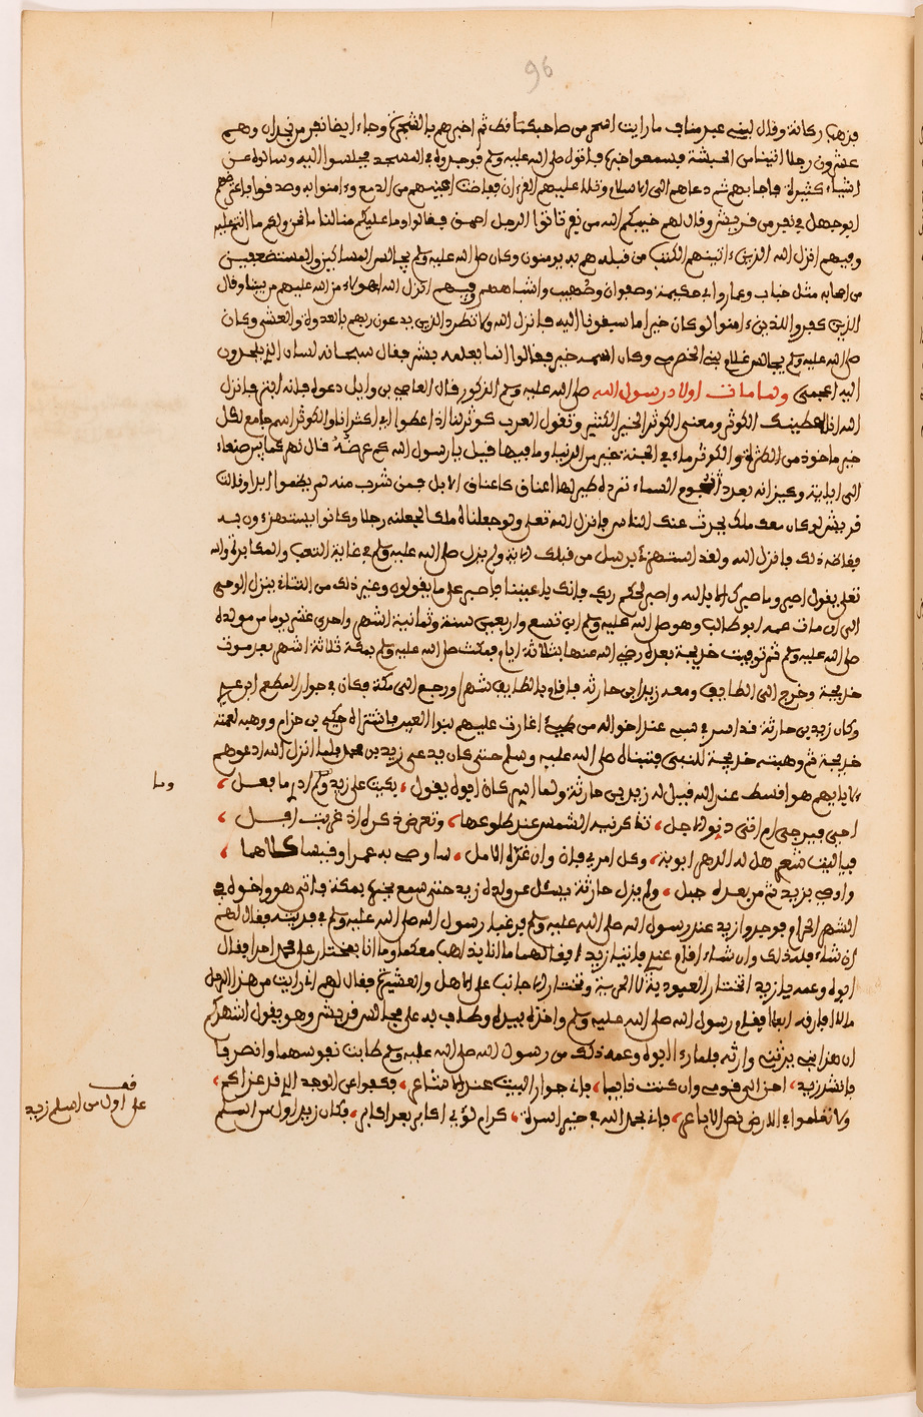 96
فذهب ركانة وقال لبني عبد مناف ما رايت اسحر من صاحبكم قط ثم اخبرهم بالشجرة وجاء ايضا نفر من نجران وهم
عشرون رجلا اتينا من الحبشة بسمعوا خبره فاقول صلى الله عليه وسلم فوجدوه في المسجد فجلسوا اليه وسالوه عن
اشياء كثيرة فاجابهم ثم دعاهم الى الاسلام وتلا عليهم القرءان ففاضت اعينهم من الدمع وءامنوا به وصدقوا فاعترضهم
ابو جهل في نفر من قريش وقال لهم خيبكم الله من نفر فانوا الرجل احمق فقالوا وما عليكم منا لنا ما نحن ولكم ما انتم عليه
وفيهم انزل الله الذين ءاتينهم الكتب من قبله هم به يومنون وكان صلى الله عليه وسلم يجالس المساكين والمستضعفين
من اصحابه مثل خباب وعمار وابي فكيهة وصفوان وصهيب واشباههم وفيهم انزل الله اهولاء من الله عليهم من بيننا وقال
الذين كفروا للذين ءامنوا لو كان خيرا ما سبقونا اليه فانزل الله ولا تطرد الذين يدعون ربهم بالغدوة والعشي وكان
صلى الله عليه وسلم يجالس غلام بني الحضرمي وكان اسمه خير فقالوا انما يعلمه بشر فقال سبحانه لسان الذي يلحدون
اليه اعجمي ولما مات اولاد رسول الله صلى الله عليه وسلم الذكور قال العاصي بن وايل دعوه فانه ابتر فانزل
الله انا اعطينك الكوثر ومعنى الكوثر الخير الكثير وتقول العرب كوثر لنا اذا عطوا اي اكثر انا والكوثر اسم جامع لكل
خير ماخوذ من الكثرة والكوثر ماء في الجنة خير من الدنيا وما فيها قيل يا رسول الله كم عرضه قال نهر كما بين صنعاء
الى ايلة وكيزانه بعدد نجوم السماء ترده طير لها اعناق كاعناق الابل فمن شرب منه لم يظموا ابدا وقالت
قريش لو كان معك ملك يحدث عنك الناس فانزل الله تعلى ولو جعلناه ملكا لجعلنه رجلا وكانوا يستهزءون به
فغاضه ذلك فانزل الله ولقد استهزئ برسل من قبلك الاية ولم يزل صلى الله عليه وسلم في غاية التعب والمكابرة والله
تعلى يقول اصبر وما صبرك الا بالله واصبر لحكم ربك فانك باعيننا فاصبر على ما يقولون وغير ذلك من الثناء ينزل الوحي
الى ان مات عمه ابو طالب وهو صلى الله عليه وسلم ابن تسع واربعين سنة وثمانية اشهر واحدى عشر يوما من مولده
صلى الله عليه وسلم ثم توفيت خديجة بعده رضي الله عنها بثلاثة ايام فمكث صلى الله عليه وسلم بمكة ثلاثة اشهر بعد موت
خديجة وخرج الى الطايف ومعه زيد ابن حارثة فاقام بالطايف شهرا ورجع الى مكة فكان في جوار المطعم ابن عدي
وكان زيد بن حارثة قد اسر في سبي عند اخواله من طيئ اغارت عليهم بنوا القين فاشتراه حكيم بن حزام ووهبه لعمته
خديجة ثم وهبته خديجة للنبي فتبناه صلى الله عليه وسلم حتى كان يدعى زيد بن محمد فلما انزل الله ادعوهم
لابايهم هو اقسط عند الله قيل له زيد بن حارثة ولما اسر كان ابوه يقول ، بكيت على زيد ولم ادر ما فعل ،
احي فيرجى ام اتى دونه الاجل ، تذكرنيه الشمس عند طلوعها ، وتعرض ذكراه اذ غربت افل ،
فياليت شعري هل له الدهر اوبة ، وكل امرئ فان وان غره الامل ، ساوصي به عمرا وقيسا كلاهما ،
واوصي يزيد ثم من بعده جبل ، ولم يزل حارثة يسئل عن ولده زيد حتى سمع بخبره بمكة فاتى هو واخوه في
الشهر الحرام فوجدوا زيد عند رسول الله صلى الله عليه وسلم فرغبا رسول الله صلى الله عليه وسلم في فديته فقال لهم
ان شاء فله ذلك وان شاء اقام عندي فاتيا زيدا فقال لهما ما انا بذاهب معكما وما انا بمختار على محمد احدا فقال
ابوه وعمه يا زيد اتختار العبودية على الحرية وتختار الاجانب على الاهل والعشيرة فقال لهم اني رايت من هذا الرجل
ما لا افارقه ابدا فقام رسول الله صلى الله عليه وسلم واخذه بيده وطاف به على مجالس قريش وهو يقول اشهدكم
ان هذا ابني يرثني وارثه فلما رءا ابوه وعمه ذلك من رسول الله صلى الله عليه وسلم طابت نفوسهما وانصرفا
فانشد زيد ، احن الى قومي وان كنت نايبا ، فاني جوار البيت عند المشاعر ، وكفوا عن الوجد الذي قد غزاكم ،
ولا تعلموا في الارض نص الاباعر ، فاني بحمد الله في خير اسرة ، كرام لؤي اكابر بعد اكابر ، فكان زيد اول من اسلم
وما
قف
على اول من اسلم زيد